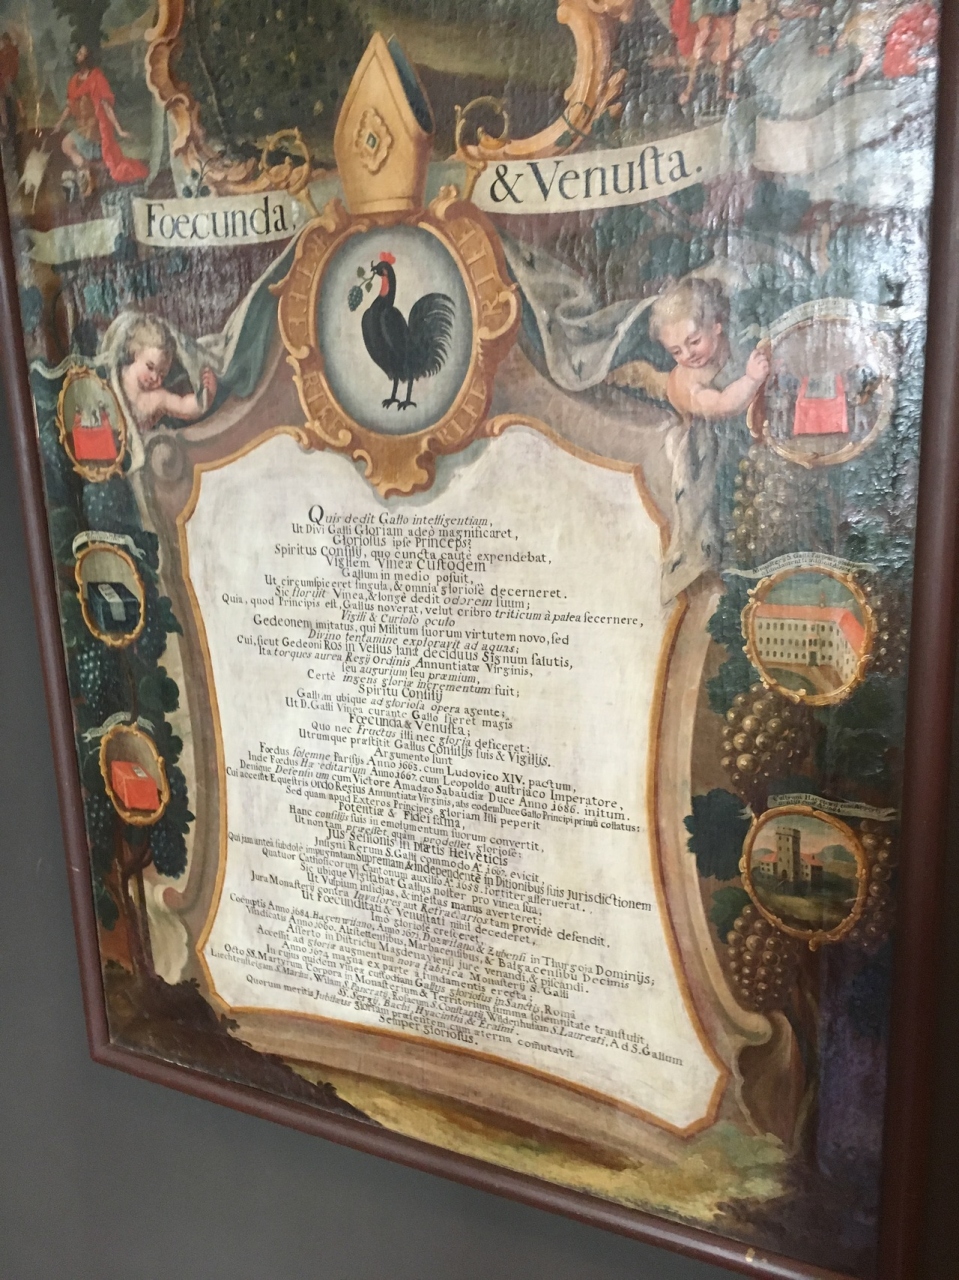 Foecunda,
& Venuſta.
Quis dedit Gallo intelligentiam,
Ut Divi Galli Gloriam adeo magnificaret,
Glorioſus ipſe Princeps?
Spiritus Conſilij, quo cuncta caute expendebat,
Vigilem Vineæ Cuſtodem
Gallum in medio poſuit,
Ut circumſpiceret ſingula, & omnia glorioſè decerneret.
Sic floruit Vinea, & longè dedit odorem ſuum;
Quia, quod Principis eſt, Gallus noverat, velut cribro triticum à palea ſecernere,
Vigili & Curioſo oculo
Gedeonem imitatus, qui Militum ſuorum virtutem novo, ſed
Divino tentamine exploravit ad aquas;
Cui, ſicut Gedeoni Ros in Vellus lanæ deciduus Signum ſalutis,
Ita torques aurea Regij Ordinis Annuntiatæ Virginis,
ſeu augurium ſeu præmium,
Certè ingens gloriæ incrementum fuit;
Spiritu Conſilij
Gallum ubique ad glorioſa opera agente;
Ut D. Galli Vinea curante Gallo fieret magis
Fœcunda & Venuſta;
Quo nec Fructus illi nec gloria deficeret;
Utrumque præſtitit Gallus Conſilijs ſuis & Vigilijs.
Argumento ſunt
Fœdus ſolemne Pariſijs Anno 1663. cum Ludovico XIV. pactum,
Inde Fœdus Hæreditarium Anno 1667. cum Leopoldo auſtriaco Imperatore,
Denique Defenſivum cum Victore Amadæo Sabaudiæ Duce Anno 1686. initum.
Cui acceſſit Equeſtris ordo Regius Annuntiatæ Virginis, abs eodem Duce Gallo Principi primũ collatus:
Sed quam apud Exteros Principes gloriam illi peperit
Potentiæ & Fidei fama,
Hanc conſilijs ſuis in emolumentum ſuorum convertit,
Ut nontam præeſſet, quàm prodeſſet glorioſe:
Jus Seſſionis in Diætis Helveticis
Inſigni Rerum S. Galli commodo Aᵒ. 1667. evicit,
Qui jam antea ſubdolè impugnatam Supremam & Independentẽ in Ditionibus ſuis Jurisdictionem
Quatuor Catholicorum Cantonum auxilio Aᵒ. 1658. fortiter aſſeruerat..
Sic ubique Vigilabat Gallus noſter pro vinea ſua,
Ut Vulpium inſidias, & infeſtas manus averteret;
Jura Monaſterij contra Invaſores aut Refractarios tam providè defendit.
Ut Fœcunditati & Venuſtati nihil decederet,
Imò glorioſè creſceret,
Coëmptis Anno 1684. Hagenwilano, Anno 1675. Dozwilano & Zubenſi in Thurgoia Dominijs,
Vindicatis Anno 1660. Altſtettenſibus, Marbacenſibus, & Balgacenſibus Decimis
Aſſerto in Diſtrictu Magdenaviensi jure venandi, & piſcandi.
Acceſſit ad gloriæ augmentum nova fabrica Monaſterij S. Galli
Anno 1674 magna ex parte à fundamentis erecta;
In ipſius quidem vineæ cuſtodiam Gallus glorioſus in Sanctis, Româ
Octo SS. Martyrum Corpora in Monaſterium & Territorium ſumma ſolemnitate tranſtulit,
S. Pancratij, Wilam, Roſacum S. Conſtantij, Wildenhuſam S. Laureati, Ad S. Gallum
SS. Sergij, Bachi, Hyacinthi, & Eraſmi.
Quorum meritis
Statiam præſentem cum æterna com̃utavit
Semper Glorioſus.